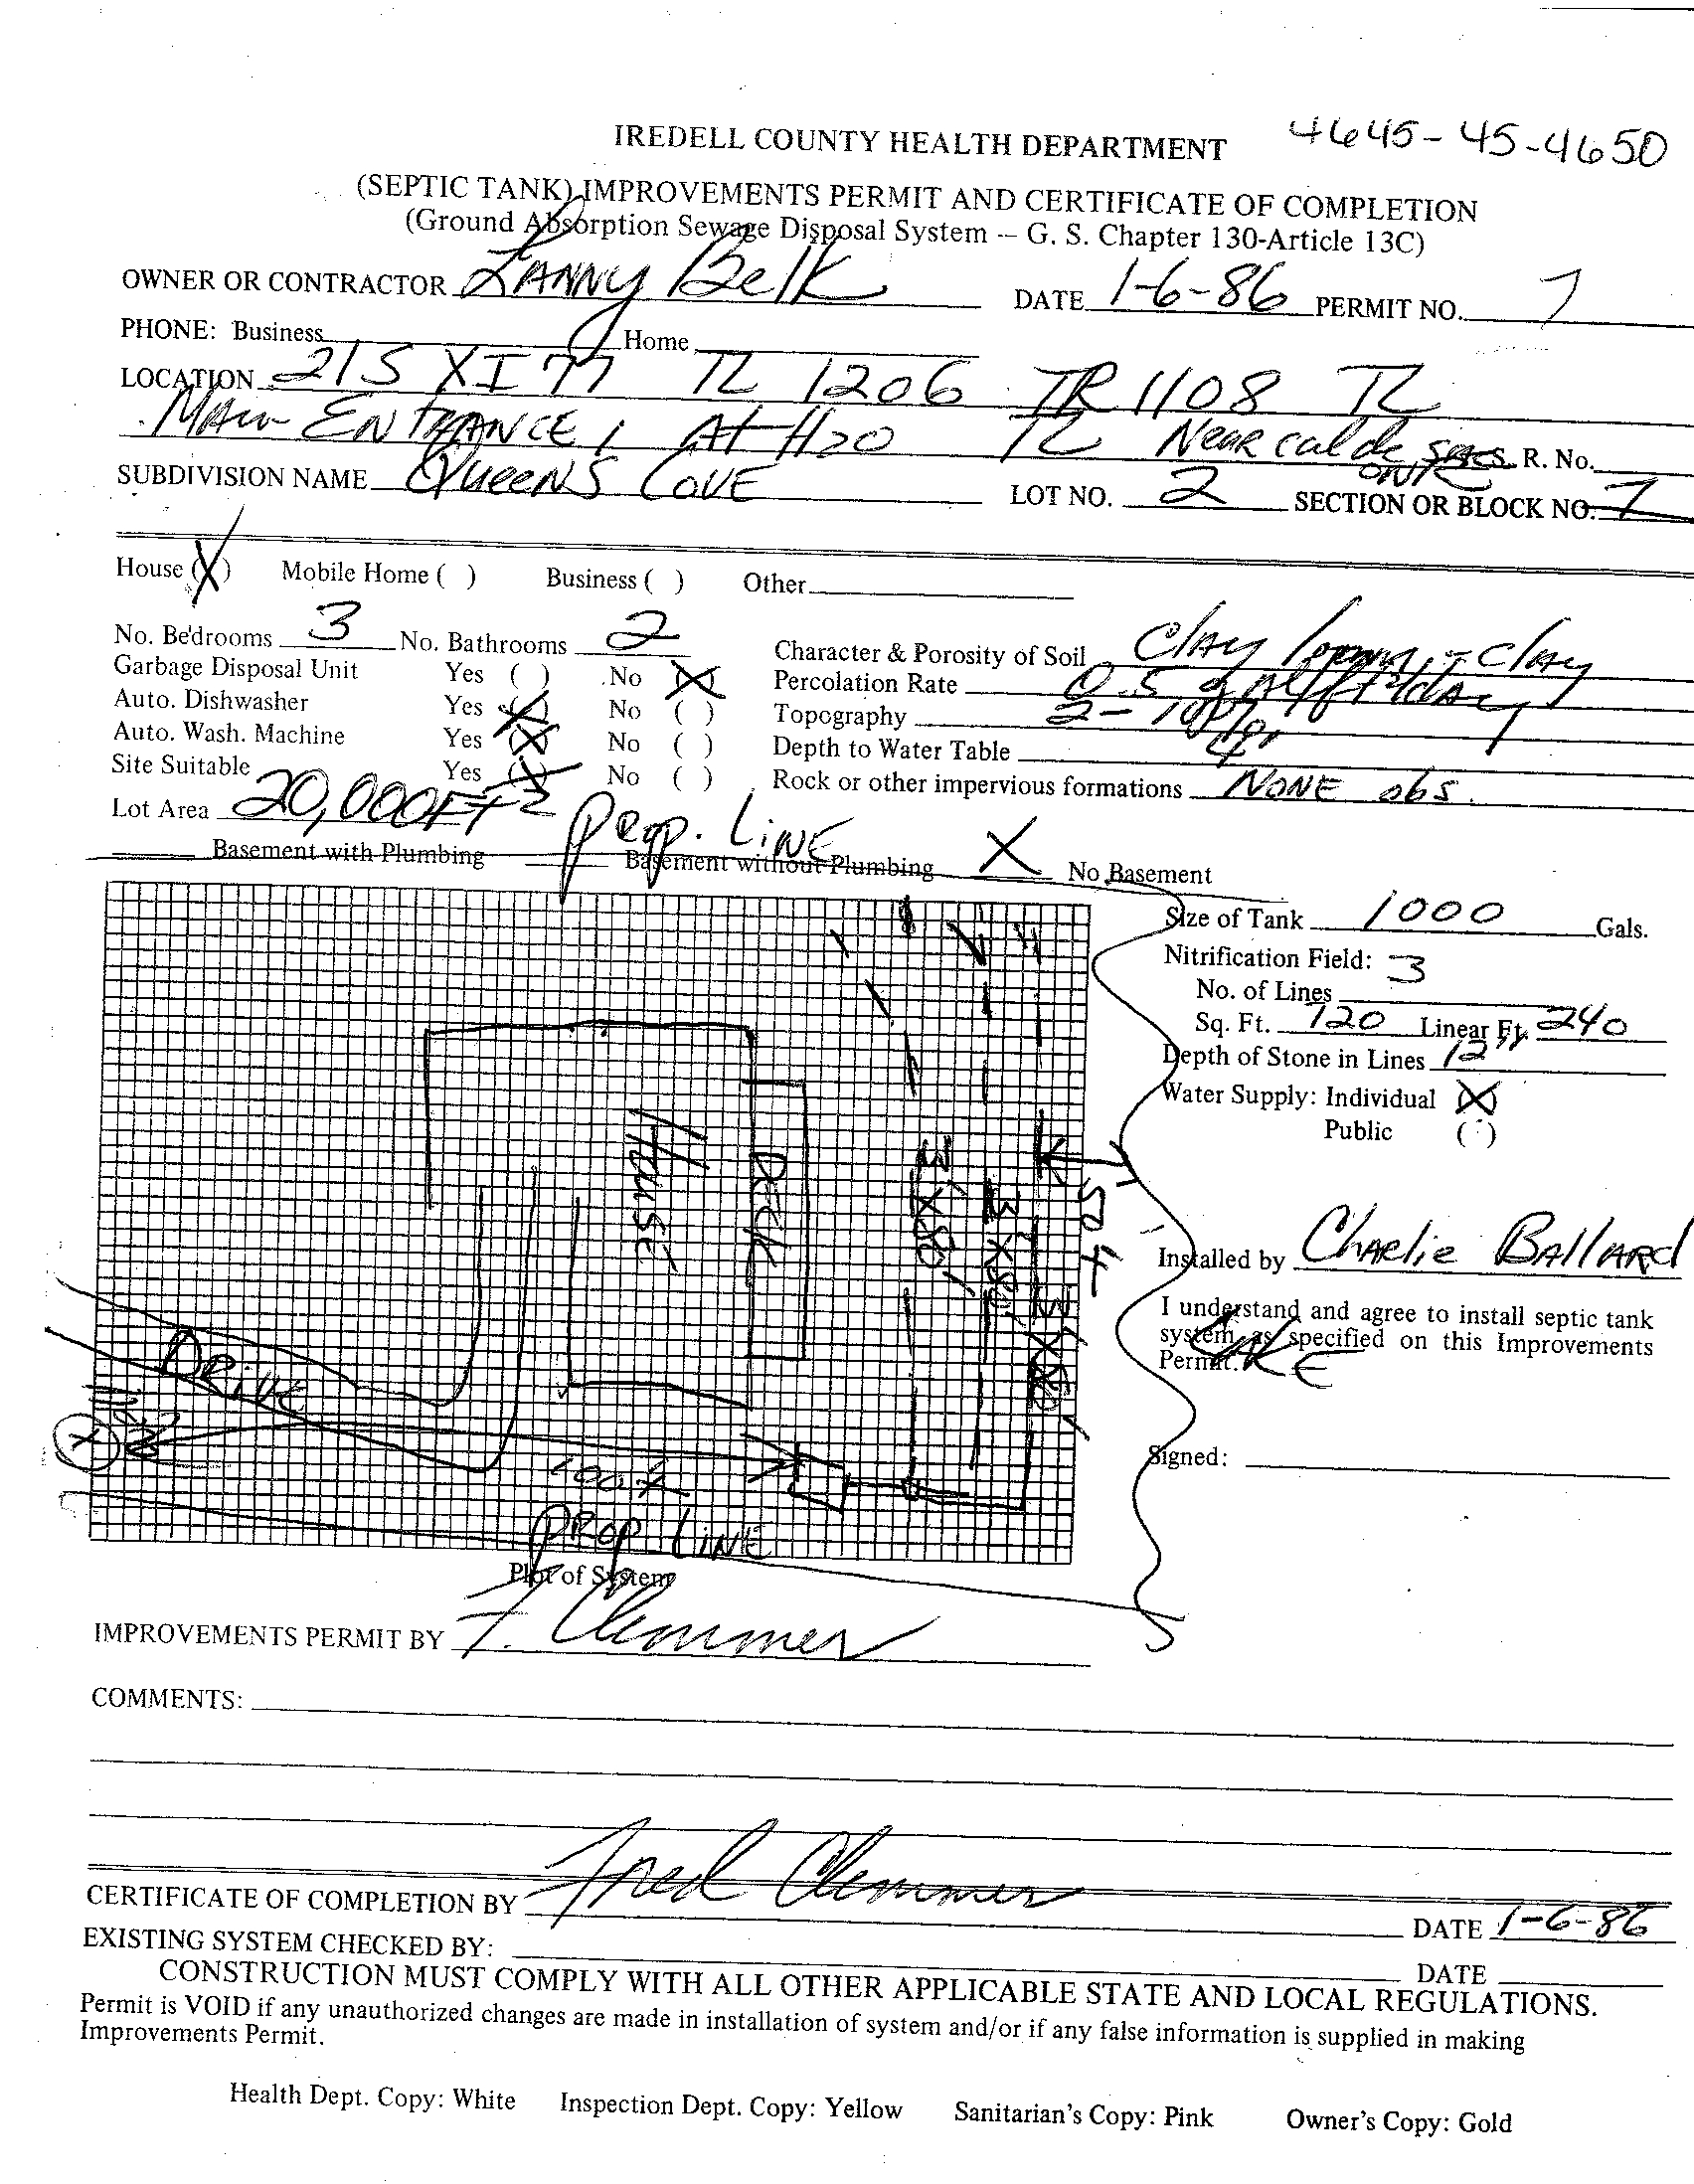 IREDELL COUNTY HEALTH DEPARTMENT 4645-45-4650
(SEPTIC TANK) IMPROVEMENTS PERMIT AND CERTIFICATE OF COMPLETION
(Ground Absorption Sewage Disposal System -- G. S. Chapter 130-Article 13C)
OWNER OR CONTRACTOR LANNY Belk DATE 1-6-86 PERMIT NO. 7
PHONE: Business Home
LOCATION 21S XI 77 TL 1206 TR 1108 TL
MAIN ENTRANCE, At H20 TL NEAR cul de sacs S. R. No.
SUBDIVISION NAME QUEENS COVE LOT NO. 2 SECTION OR BLOCK NO. 7
ONE
House (X) Mobile Home ( ) Business ( ) Other
No. Bedrooms 3 No. Bathrooms 2 Character & Porosity of Soil Clay loam - Clay
Garbage Disposal Unit Yes ( ) No (X) Percolation Rate 0.5 gal/ft2/day
Auto. Dishwasher Yes (X) No ( ) Topography 2-10%
Auto. Wash. Machine Yes (X) No ( ) Depth to Water Table 4'
Site Suitable Yes (X) No ( ) Rock or other impervious formations NONE obs.
Lot Area 20,000 FT2
Prop. LINE
Basement with Plumbing Basement without Plumbing X No Basement
Size of Tank 1000 Gals.
Nitrification Field:
No. of Lines 3
Sq. Ft. 720 Linear Ft. 240
Depth of Stone in Lines 12"
Water Supply: Individual (X)
Public ( )
House
DECK
3'X80'
3'X80'
3'X80'
50'±
Installed by Charlie Ballard
I understand and agree to install septic tank
system as specified on this Improvements
Permit.
LAKE
Drive
Well
X
100'±
Signed:
PROP LINE
Plot of System
IMPROVEMENTS PERMIT BY F. Clemmer
COMMENTS:
CERTIFICATE OF COMPLETION BY Fred Clemmer DATE 1-6-86
EXISTING SYSTEM CHECKED BY: DATE
CONSTRUCTION MUST COMPLY WITH ALL OTHER APPLICABLE STATE AND LOCAL REGULATIONS.
Permit is VOID if any unauthorized changes are made in installation of system and/or if any false information is supplied in making
Improvements Permit.
Health Dept. Copy: White Inspection Dept. Copy: Yellow Sanitarian's Copy: Pink Owner's Copy: Gold